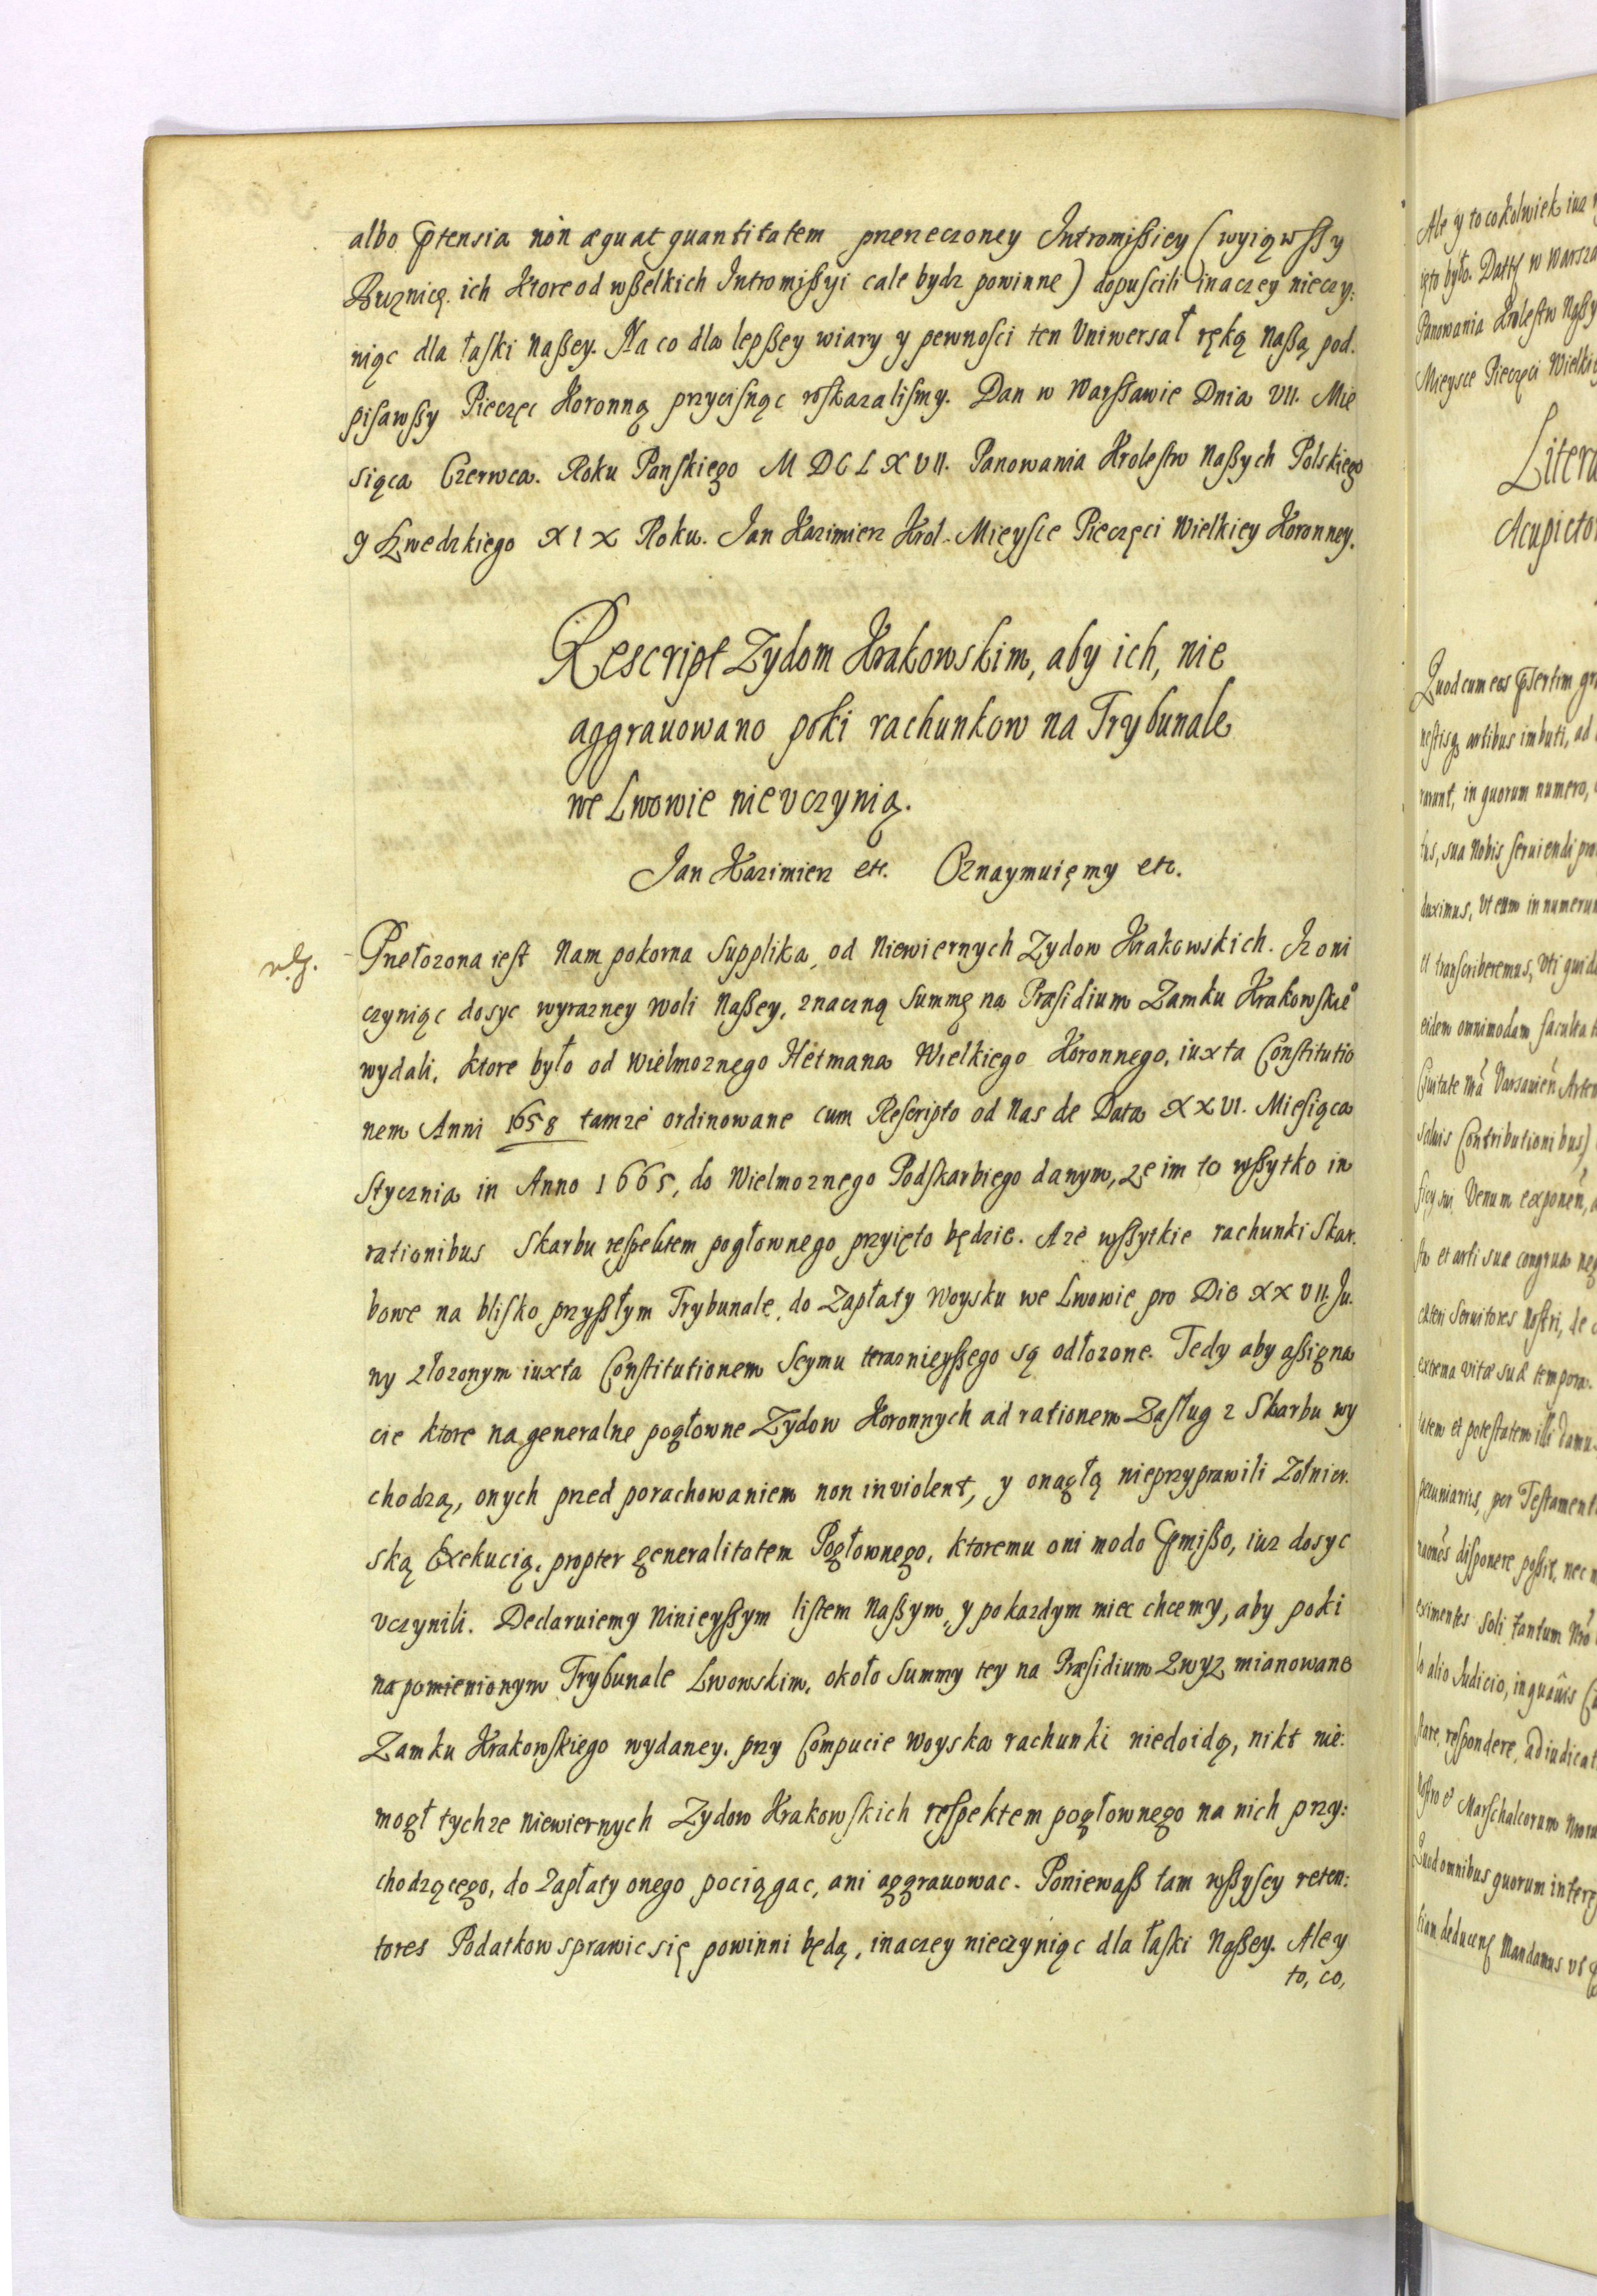 albo p̃tensia non æquat quantitatem przerzeczoney Intromißiey (wyiąwßy
Buznicę ich ktore od wßelkich Intromißyi cale bydz powinne) dopuscili inaczey nieczy:
niąc dla łaski naßey. Na co dla lepßey wiary y pewnosci ten Uniwersał ręką naßą pod.
pisawßy Pieczęc Koronną przycisnąc roskazalismy. Dan w Warßawie Dnia VII. Mie
siąca Czerwca. Roku Panskiego MDCLXVII. Panowania Krolestw Naßych Polskiego
y Szwedzkiego XIX Roku. Jan Kazimierz Krol. Mieysce Pieczęci Wielkiey Koronney.
Rescript Zydom Krakowskim, aby ich, nie
aggrauowano poki rachunkow na Trybunale
we Lwowie nie vczynią.
Jan Kazimierz etc. Oznaymuięmy etc.
Przełozona iest Nam pokorna Supplika, od Niewiernych Zydow Krakowskich. Iz oni
czyniąc dosyc wyrazney woli Naßey, znaczną Summę na Præsidium Zamku Krakowskieo
wydali, ktore było od Wielmoznego Hetmana Wielkiego Koronnego, iuxta Constitutio
nem Anni 1658 tamze ordinowane cum Rescripto od Nas de Data XXVI. Miesiąca
Stycznia in Anno 1665, do Wielmoznego Podskarbiego danym, ze im to wßytko in
rationibus Skarbu respektem pogłownego przyięto będzie. A ze wßytkie rachunki Skar.
bowe na blisko przyßłym Trybunale, do Zapłaty Woysku we Lwowie pro Die XXVII. Ju.
ny złozonym iuxta Constitutionem Seymu teraznieyßego są odłozone. Tedy aby aßigna
cie ktore na generalne pogłowne Zydow Koronnych ad rationem Zasług z Skarbu wy
chodzą, onych przed porachowaniem non inviolent, y onagłą nieprzyprawili Zołnier.
ską Exekucią, propter generalitatem Pogłownego, ktoremu oni modo p̃mißo, iuz dosyc
vczynili. Declaruiemy Ninieyßym listem Naßym, y po kazdym miec chcemy, aby poki
na pomienionym Trybunale Lwowskim, około Summy tey na Præsidium Zwyz mianowane
Zamku Krakowskiego wydaney, przy Compucie Woyska rachunki niedoidą, nikt nie:
mogł tychze Niewiernych Zydow Krakowskich respektem pogłownego na nich przy:
chodzącego, do Zapłaty onego pociągac, ani aggrauowac. Poniewaß tam wßyscy reten:
tores Podatkow sprawic się powinni będą, inaczey nieczyniąc dla łaski Naßey. Ale y
to, co,
Ale y to cokolwiek iuz
ięto było. Datt w Warsza
Panowania Krolestw Naßy
Mieysce Pieczęci Wielki
Litera
Acupicto
Quod cum eos p̃sertim
nestisq artibus imbuti, ad
rarunt, in quorum numero,
tus, sua Nobis seruiendi
duximus, Vt eum in numerum
et transcriberemus, Vti quid
eidem omnimodam faculta
Ciuitate
saluis Contributionibus)
Venum exponen̄,
et arti suæ congrua
cæteri Seruitores Nostri, de
extrema vitæ suæ tempora.
tatem et potestatem illi damus
pecuniariis, per Testament
disponere poßit, nec
eximentes soli tantum
alio Judicio, in quauis
stare, respondere, adiudicat
Marschalcorum
Quod omnibus quorum intere
deducen Mandamus vt